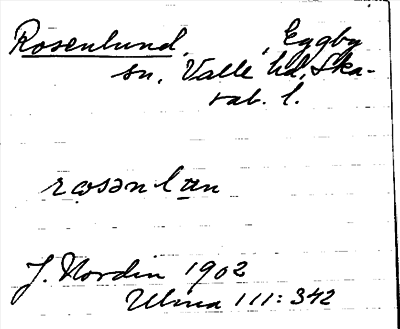 Rosenlund, Eggby
sn, Valle hd, Ska-
rab. l.
rosənlən
J. Nordin 1902
Ulma 111: 342